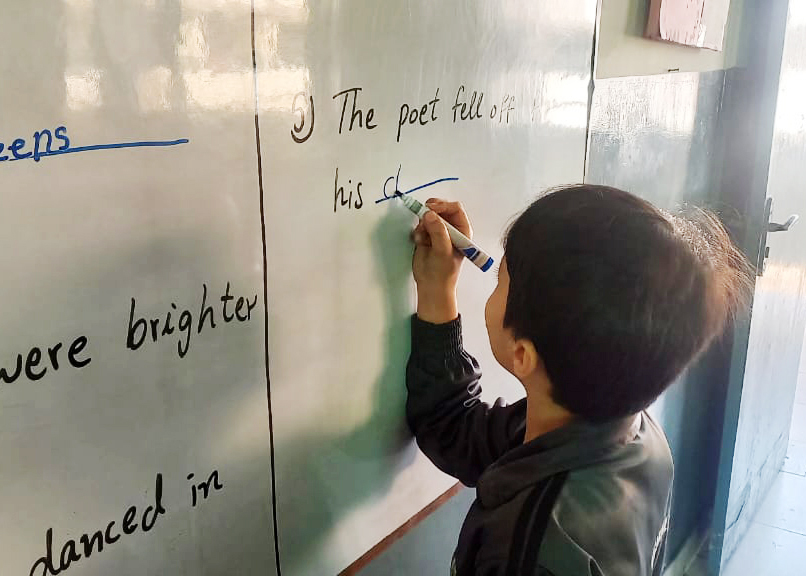 eens
were brighter
danced in
5) The poet fell off
his d